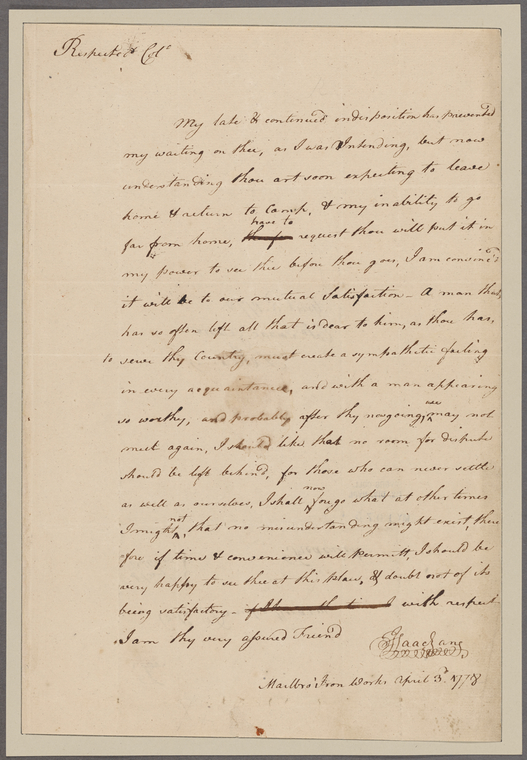 Respected Colo
My late & continued indisposition has prevented
my waiting on thee, as I was Intending, but now
understanding thou art soon expecting to leave
home & return to Camp, & my inability to go
far from home, have to request thou will put it in
my power to see thee before thou goes, I am convinc'd
it will be to our mutual Satisfaction – A man that
has so often left all that is dear to him, as thou has,
to serve thy Country, must create a sympathetic feeling
in every acquaintance, and with a man appearing
so worthy, and probably after thy now going, we may not
meet again, I should like that no room for dispute
should be left behind, for those who can never settle
as well as ourselves, I shall now forgo what at other times
I might not, that no misunderstanding might exist, there
fore if time & convenience will permitt, I should be
very happy to see thee at this place, & doubt not of its
being satisfactory – with respect
I am thy very assured Friend
Isaac Zane
Marlbro' Iron Works April 3d 1778